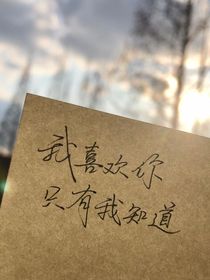 我喜欢你
只有我知道